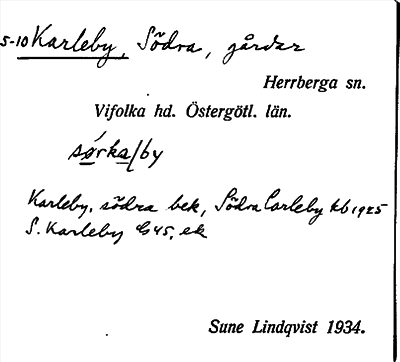 5-10 Karleby, Södra, gårdar
Herrberga sn.
Vifolka hd. Östergötl. län.
sørka/by
Karleby, södra bek, Södra Carleby kb 1925
S. Karleby G 45, ek
Sune Lindqvist 1934.